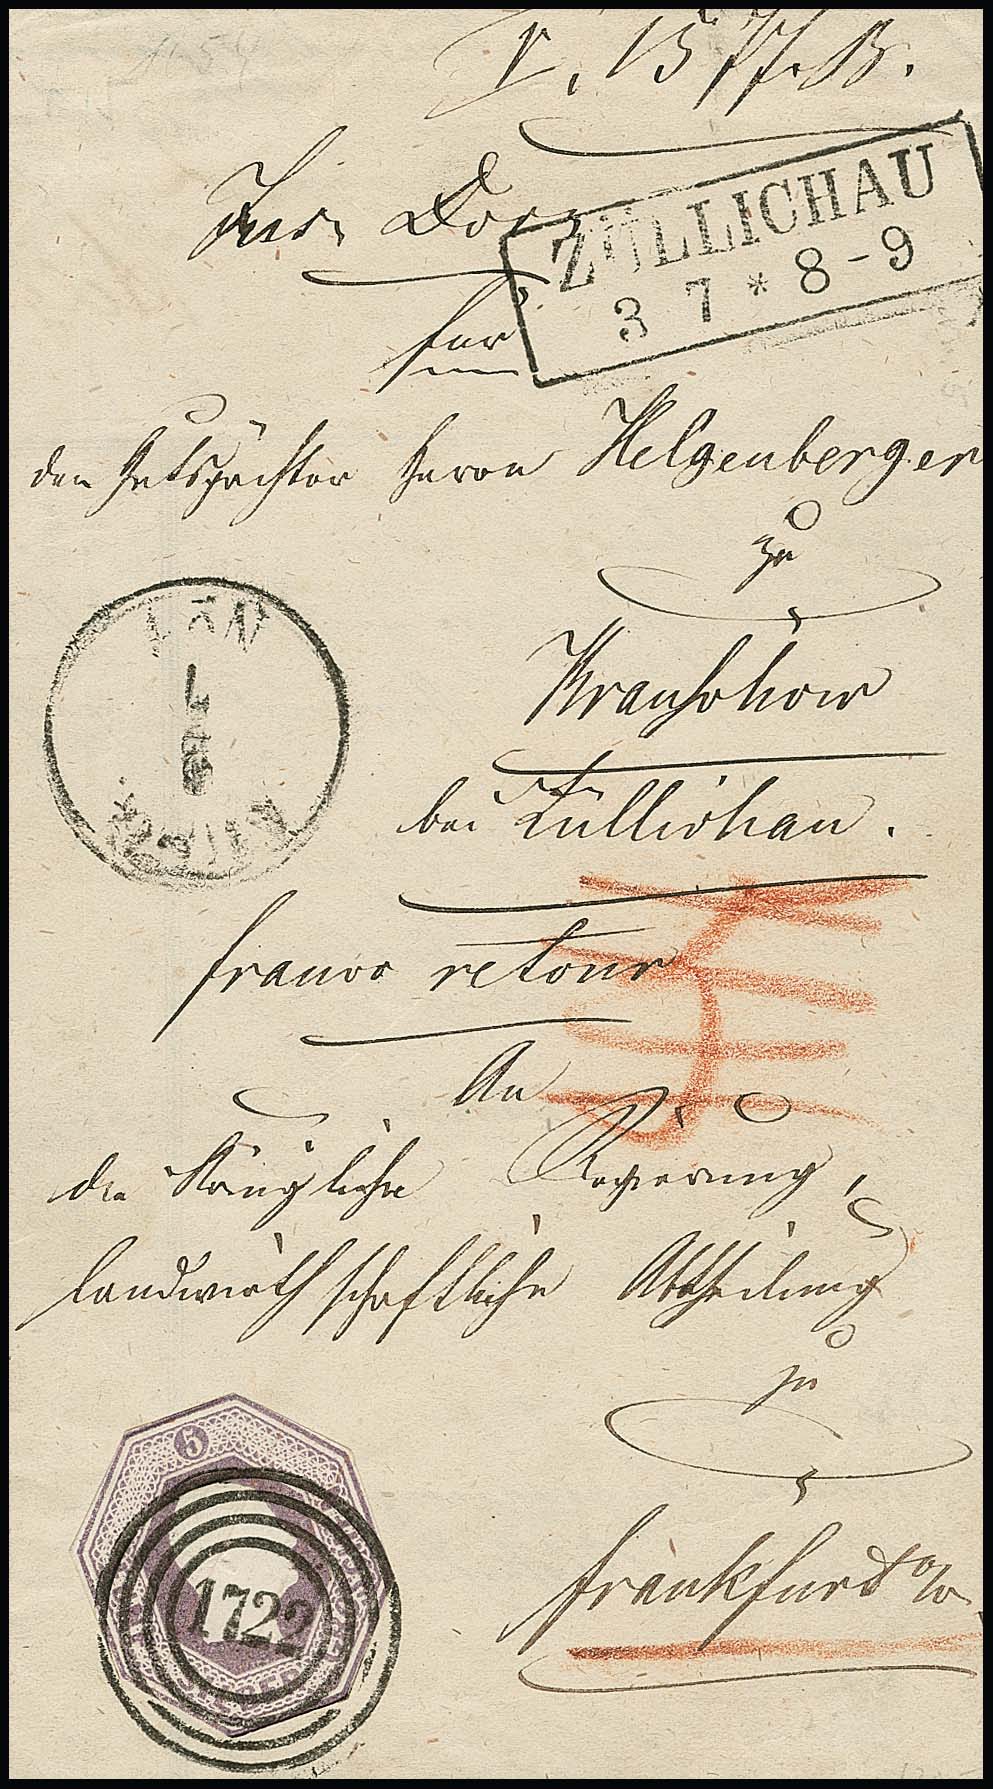 ZÜLLICHAU
3 7 * 8-9
für
den Gutspächter Herrn Helgenberger
zu
Krauschow
bei Züllichau.
franco retour
An
die Königliche Regierung,
landwirthschaftliche Abtheilung
zu
Frankfurt a/o.
5
1722